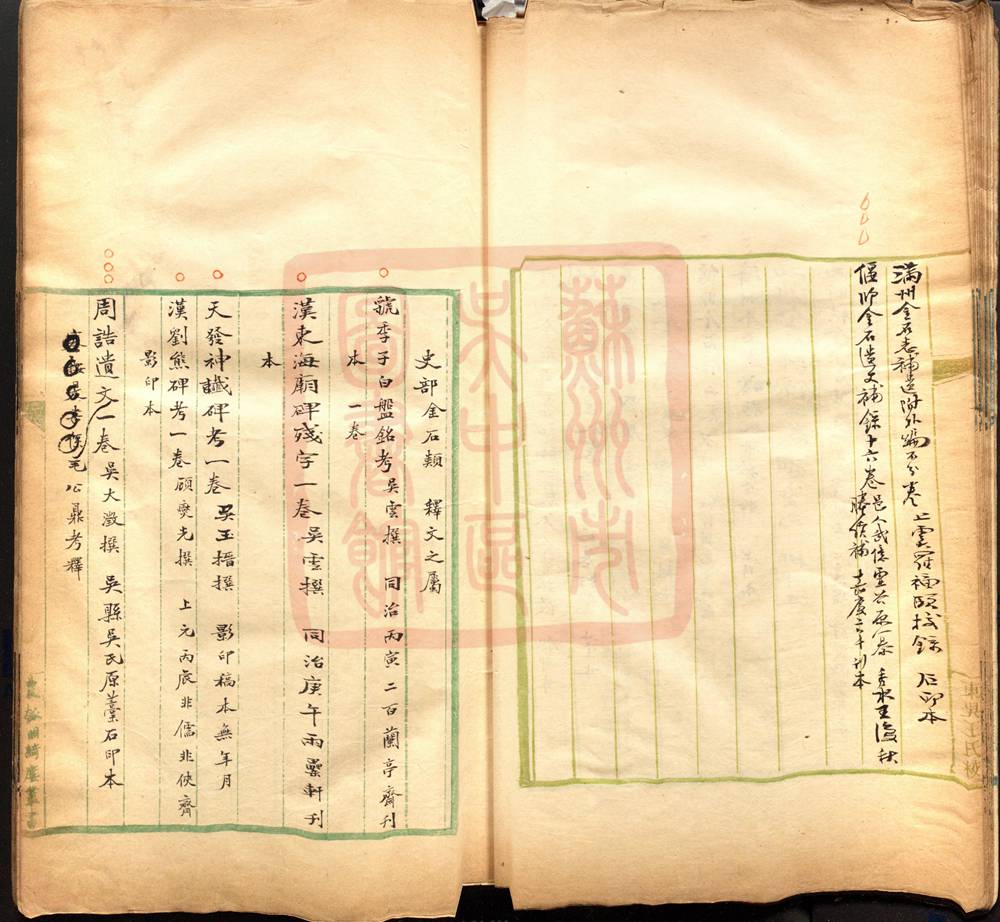 滿州金石志補遺附外編不分卷 上虞羅福頤校錄 石印本
偃師金石遺文補錄十六卷 邑人武億虛谷原纂 秀水王復秋塍續補 嘉慶二年刊本
史部金石類 釋文之屬
虢季子白盤銘考一卷 吳雲撰 同治丙寅二百蘭亭齋刊本
漢東海廟碑殘字一卷 吳雲撰 同治庚午兩罍軒刊
本
天發神讖碑考一卷 吳玉搢撰 影印稿本無年月
漢劉熊碑考一卷 顧燮光撰 上元丙辰非儒非俠齋
影印本
周誥遺文一卷 吳大澂撰 吳縣吳氏原藁石印本
毛公鼎考釋
蘇州市吳中區圖書館